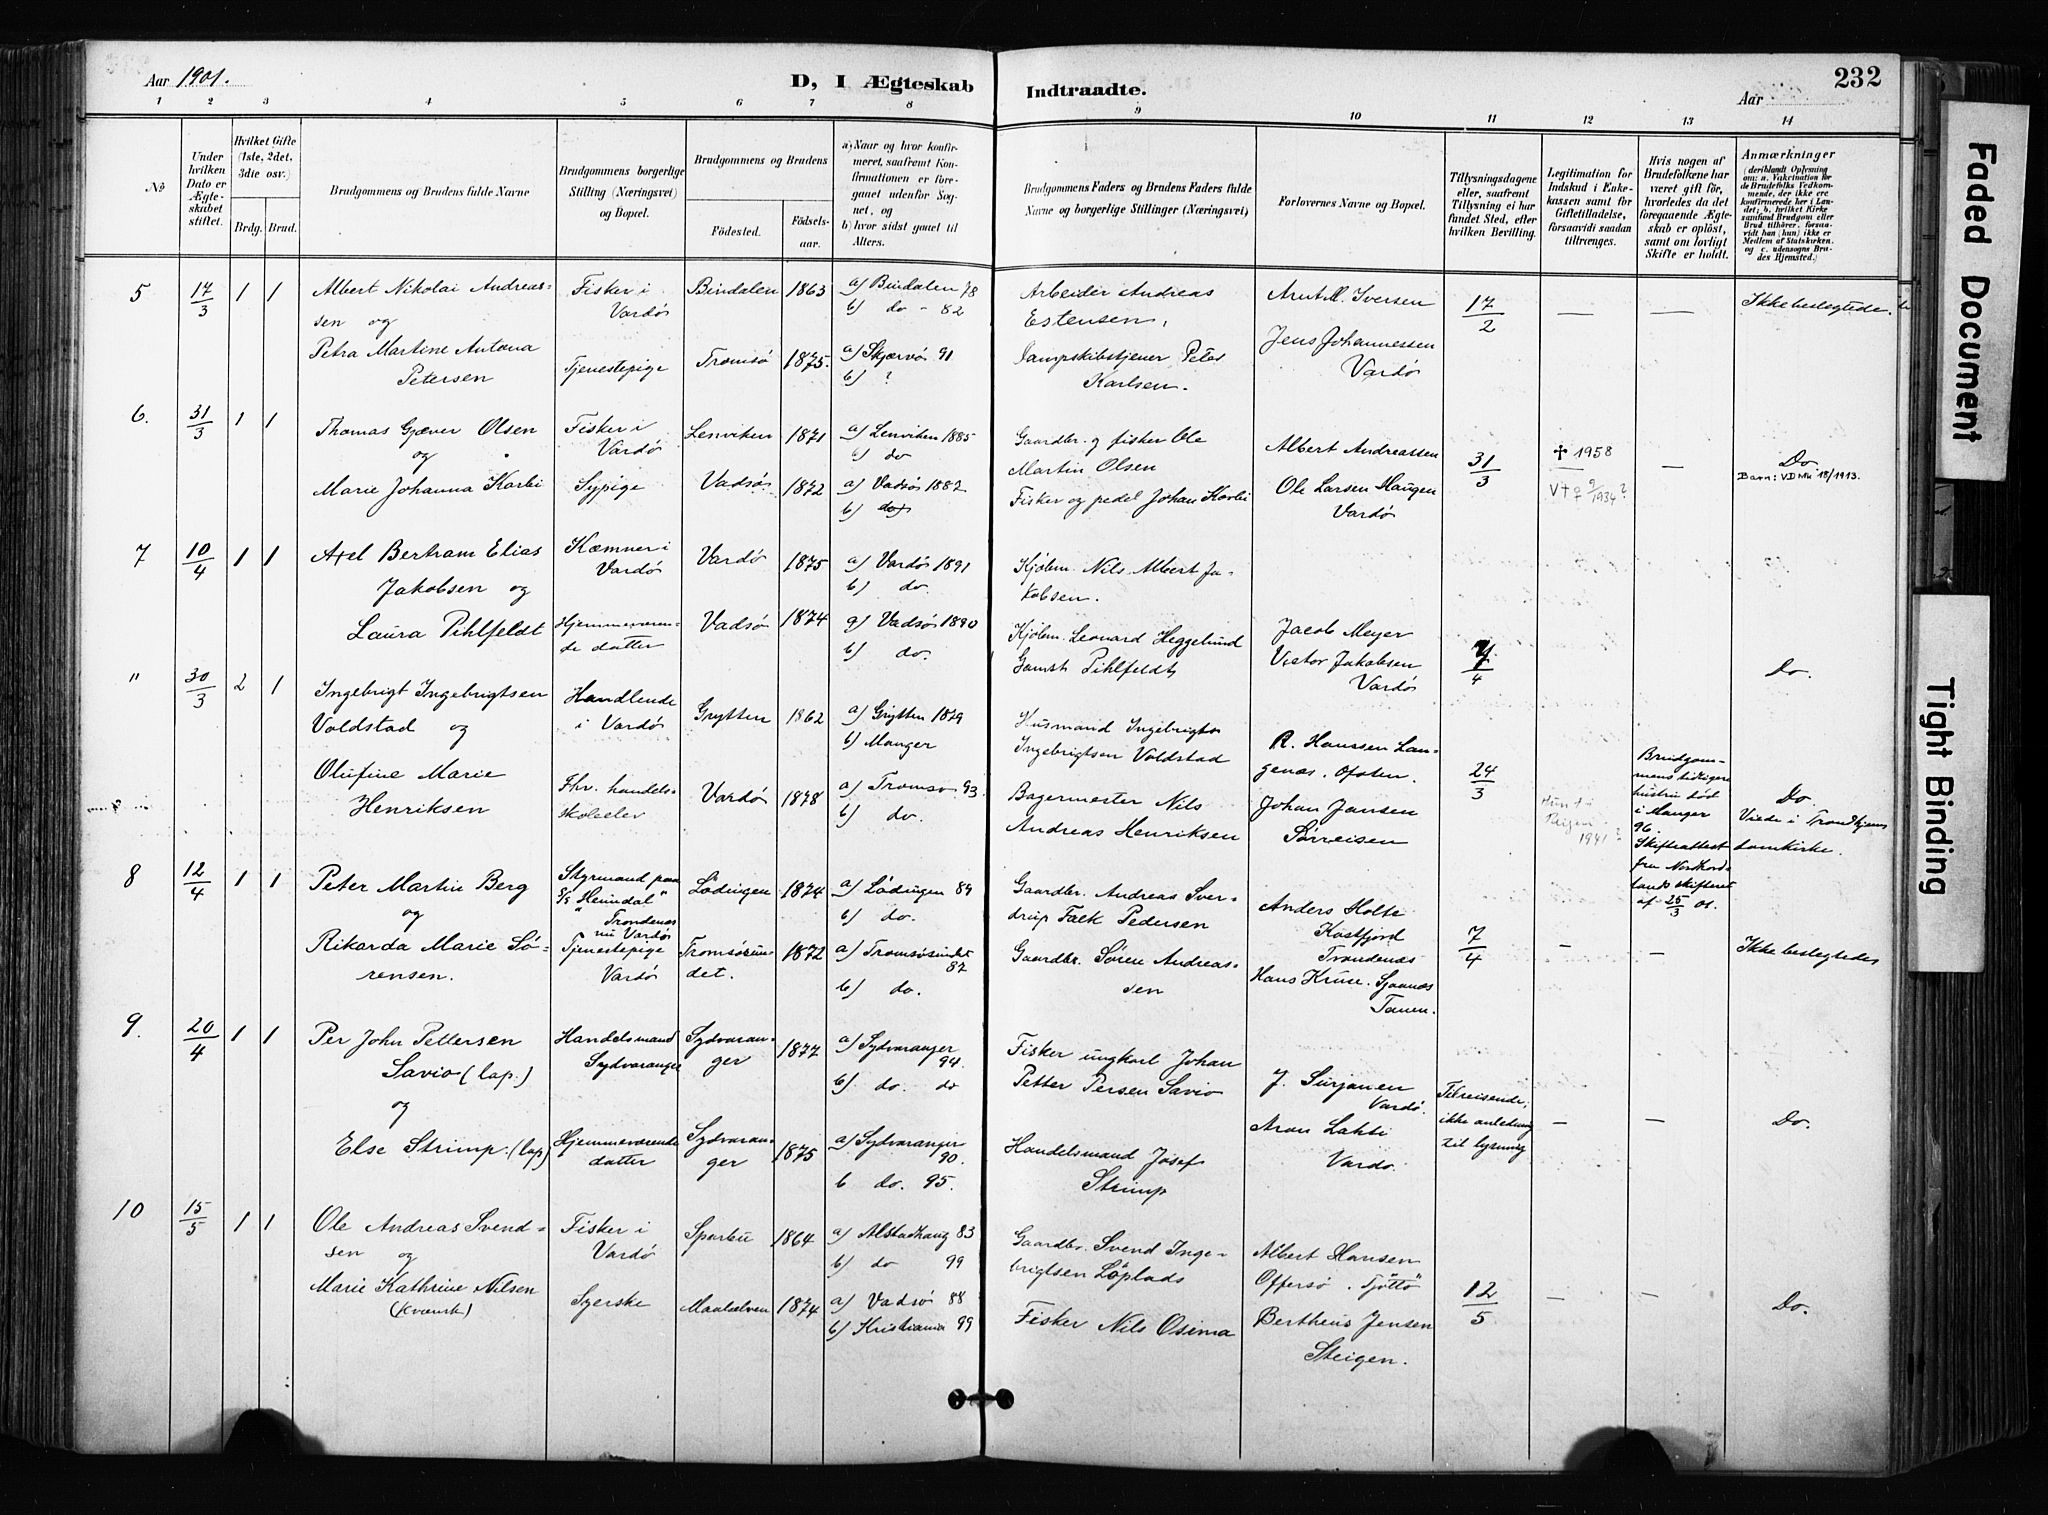 Aar 1901.
D, I Ægteskab
Indtraadte.
Aar
232
1 2 3 4 5 6 7 8 9 10 11 12 13 14
No
Under hvilken Dato er Ægteskabet stiftet.
Hvilket Gifte (1ste, 2det, 3die osv.)
Brdg. Brud.
Brudgommens og Brudens fulde Navne
Brudgommens borgerlige Stilling (Næringsvei) og Bopæl.
Brudgommens og Brudens
Fødested.
Fødselsaar.
a) Naar og hvor konfirmeret, saafremt Konfirmationen er foregaaet udenfor Sognet, og
b) hvor sidst gaaet til Alters.
Brudgommens Faders og Brudens Faders fulde Navne og borgerlige Stillinger (Næringsvei)
Forlovernes Navne og Bopæl.
Tillysningsdagene eller, saafremt Tillysning ei har fundet Sted, efter hvilken Bevilling.
Legitimation for Indskud i Enkekassen samt for Giftetilladelse, forsaavidt saadan tiltrænges.
Hvis nogen af Brudefolkene har været gift før, hvorledes da det foregaaende Ægteskab er opløst, samt om lovligt Skifte er holdt.
Anmærkninger
(deriblandt Oplysning om: a. Vakcination for de Brudefolks Vedkommende, der ikke ere konfirmerede her i Landet; b. hvilket Kirkesamfund Brudgom eller Brud tilhører, forsaavidt han (hun) ikke er Medlem af Statskirken, og c. udensogns Brudes Hjemsted.)
5 17/3 1 1
Albert Nikolai Andreas-
sen og
Petra Martine Antona
Petersen
Fisker i
Vardø
Tjenestepige
Bindalen 1863
Tromsø 1875.
a) Bindalen 78
b) do - 82
a) Skjærvø 91
b) ?
Arbeider Andreas
Estensen,
Dampskibstjener Peter
Karlsen.
Arnt M. Iversen
Jens Johannessen
Vardø
17/2
— —
Ikke beslegtede.
6. 31/3 1 1
Thomas Gjæver Olsen
og
Marie Johanna Karbi
Fisker i
Vardø
Sypige
Lenviken 1871
Vadsø 1872
a) Lenviken 1885
b) do
a) Vadsø 1887
b) do
Gaardbr. og fisker Ole
Martin Olsen
Fisker og pedel Johan Korbi
Albert Andreassen
Ole Larsen Haugen
Vardø
31/3
✝ 1958
V✝ ♀ 9/1934?
—
Do
Barn: VD Nr 18/1913.
7 10/4 1 1
Axel Bertram Elias
Jakobsen og
Laura Pihlfeldt
Kæmner i
Vardø
Hjemmeværen-
de datter
Vardø 1875
Vadsø 1874
a) Vardø 1891
b) do.
a) Vadsø 1890
b) do.
Kjøbm. Nils Albert Ja-
kobsen.
Kjøbm. Leonard Heggelund
Gamst Pihlfeldt
Jacob Meyer
Victor Jakobsen
Vardø
7/4
Do.
" 30/3 2 1
Ingebrigt Ingebrigtsen
Voldstad og
Olufine Marie
Henriksen
Handlende
i Vardø
Fhv. handels-
skoleelev
Grytten 1862
Vardø 1878
a) Grytten 1879
b) Manger
a) Tromsø 93
b) do.
Husmand Ingebrigt
Ingebrigtsen Voldstad
Bagermester Nils
Andreas Henriksen
R. Hanssen Lan-
genæs. Ofoten.
Johan Jansen
Sørreisen
24/3
1941?
Brudgom-
mens tidligere
hustru død
i Manger
96.
Skifteattest
fra Nordhord-
lands skifteret
af 25/3 01.
Do.
Viede i Trondhjems
domkirke.
8 12/4 1 1
Peter Martin Berg
og
Rikarda Marie Sø-
rensen.
Styrmand paa
S/S "Heimdal"
Trondenæs
nu Vardø
Tjenestepige
Vardø
Lødingen 1874
Tromsøsun-
det. 1872
a) Lødingen 89
b) do.
a) Tromsøsundet
87
b) do.
Gaardbr. Andreas Sver-
drup Falk Pedersen
Gaardbr. Søren Andreas-
sen
Anders Holte
Kastfjord
Trondenæs
Hans Kruse. Sjaanæs
Tanen.
7/4
— —
Ikke beslegtede
9. 20/4 1 1
Per John Pettersen
Savio (lap.)
og
Else Strimp. (lap)
Handelsmand
Sydvaranger
Hjemmeværende
datter
Sydvaran-
ger 1877
Sydvaran-
ger 1875
a) Sydvaranger
94.
b) do. do
a) Sydvaranger
90.
b do. 95.
Fisker ungkarl Johan
Petter Persen Savio
Handelsmand Josef
Strimp
J. Surjanen
Vardø.
Aron Lahti
Vardø.
Tilreisende;
ikke anledning
til lysning
— —
Do.
10 15/5 1 1
Ole Andreas Svend-
sen og
Marie Kathrine Nilsen
(kvænsk)
Fisker i
Vardø
Syerske
Sparbu 1864
Maalselven 1874
a) Alstadhaug 83
b) do 99
a) Vadsø 88
b) Kristiania 99
Gaardbr. Svend Inge-
brigtsen Löplads
Fisker Nils Osima
Albert Hansen
Offersø. Tjöttö
Bertheus Jensen
Steigen.
12/5
— —
Do.
Faded Document
Tight Binding